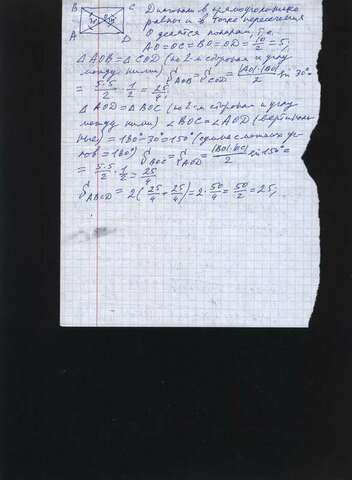 B C Диагонали в прямоугольнике
равны и в точке пересечения
О делятся пополам, т.е.
A D AO=OC=BO=OD=10/2=5,
Δ AOB=Δ COD (по 2-м сторонам и углу
между ними) S AOB=S COD=|AO|·|BO|/2 sin 30°=
= 5·5/2 · 1/2 = 25/4
Δ AOD=Δ BOC (по 2-м сторонам и углу
между ними) ∠BOC=∠AOD (вертикаль
ные) =180°-30°=150° (сумма смежных уг
лов =180°) S BOC=S AOD=|BO|·|OC|/2 sin 150°=
= 5·5/2 · 1/2 = 25/4
S ABCD = 2(25/4+25/4)=2·50/4=50/2=25,